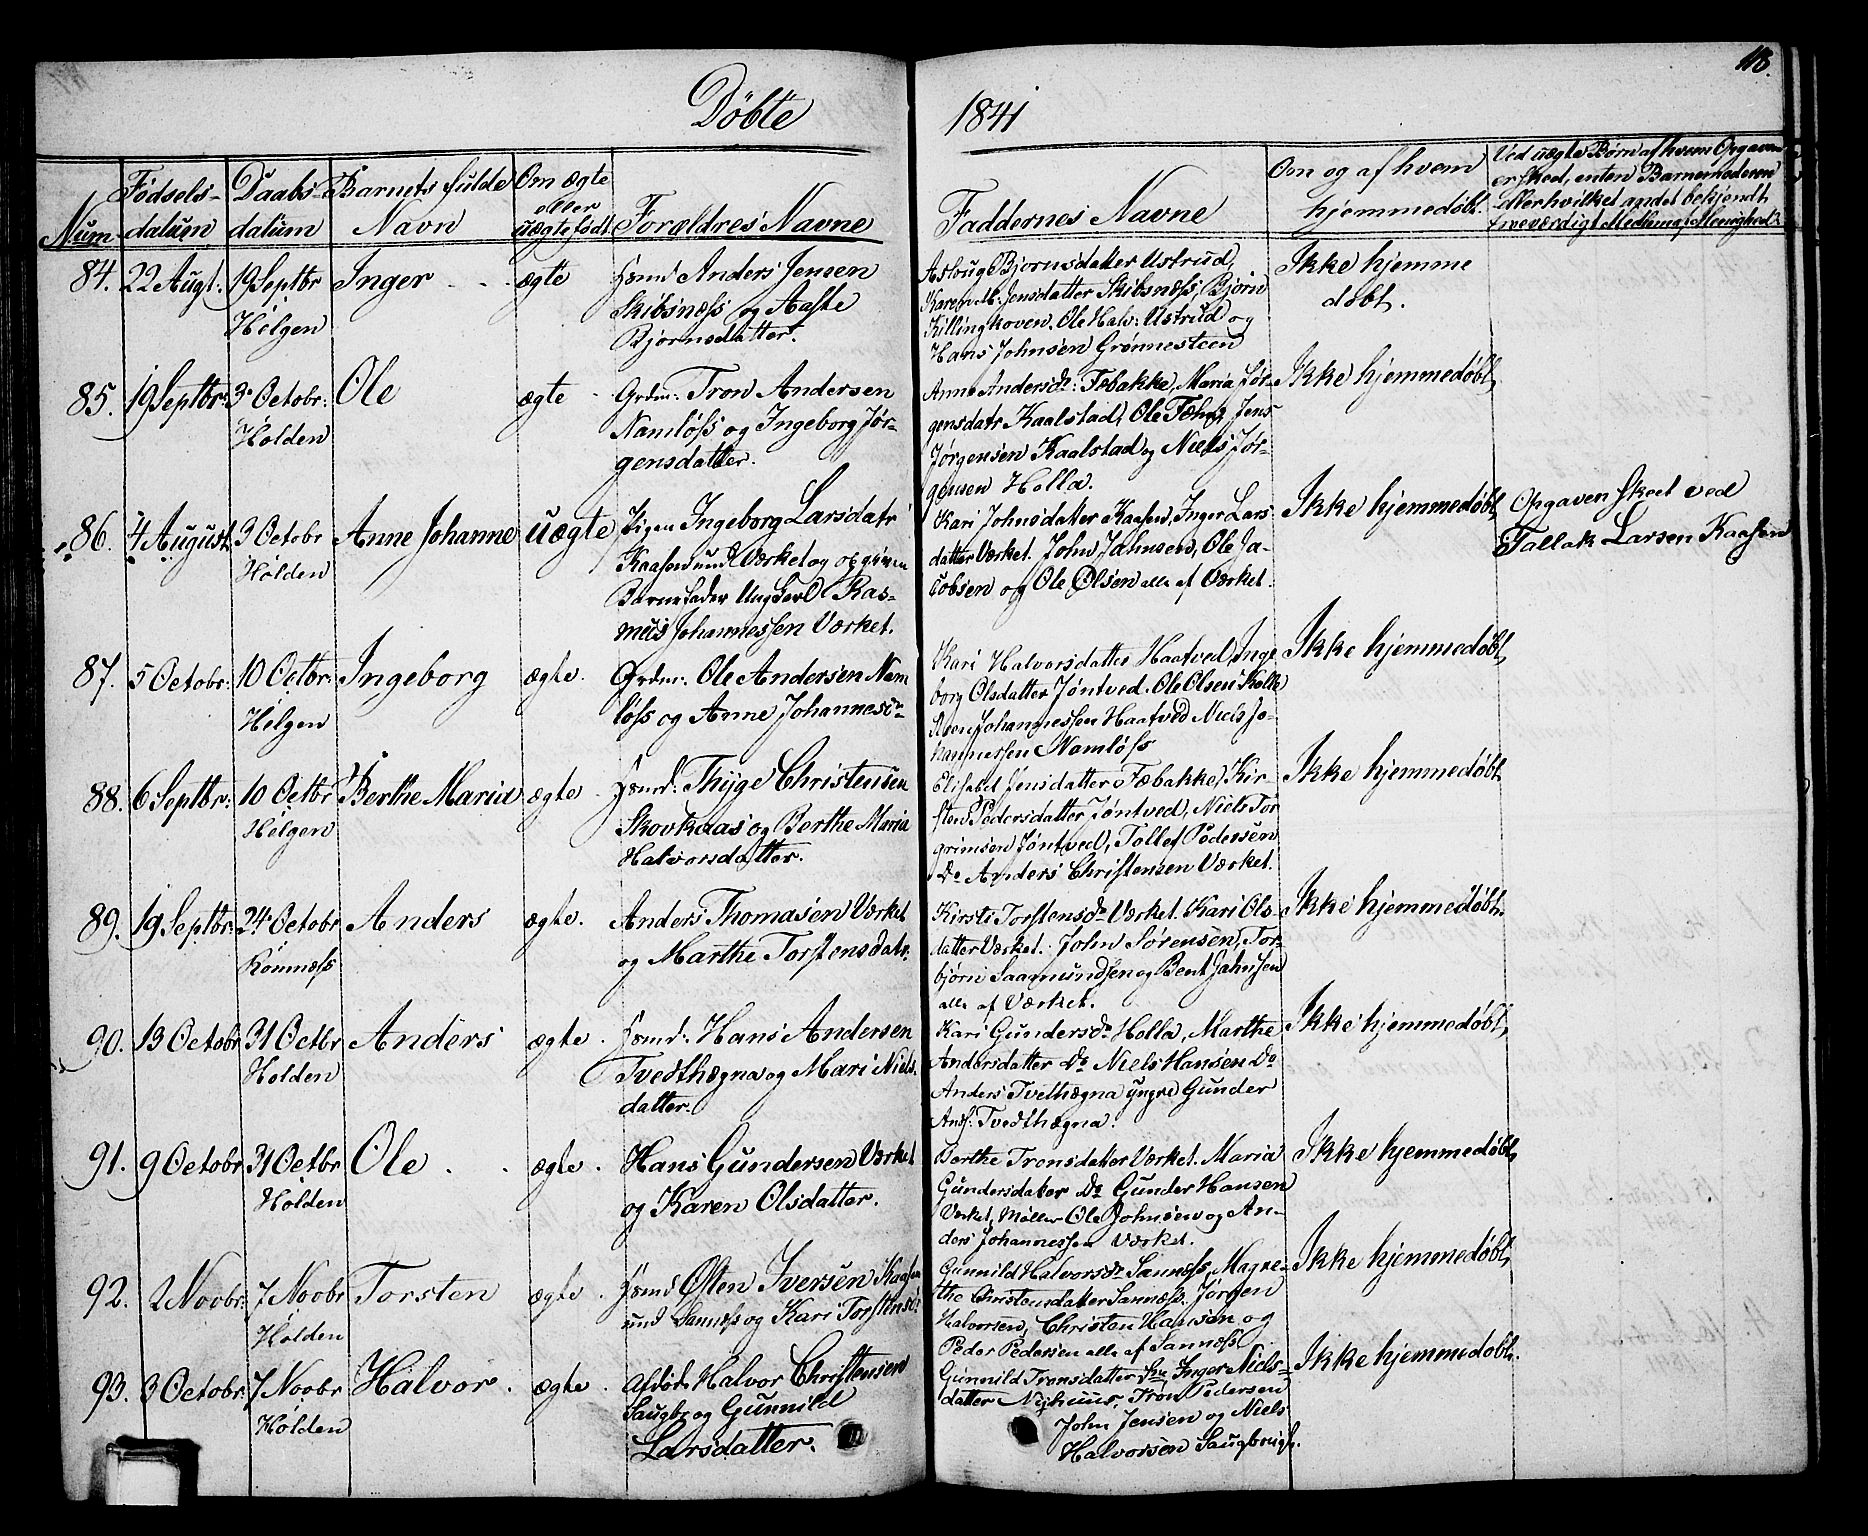 118.
Döbte 1841
Num
Födsels-
datum
Daabs-
datum
Barnets fulde
Navn
Om ægte
eller
uægte född
Forældres Navne
Faddernes Navne
Om og af hvem
hjemmedøbt.
Ved uægte Børn af hvem Opgaven
er skeed, enten Barnemoderen
Eller hvilket andet bekjendt
troeværdigt Medlem af Menighed.
84. 22 Augt. 19 Septbr Inger ægte
Helgen
Hsmd Anders Jensen
Skibsnæss og Aaste
Bjørnsdatter.
Aslaug Bjornsdatter Ustrud,
Karen M: Jensdatter Skibsnæss, Bjørn
Killinghoven. Ole Halv: Ustrud og
Hans Johnsen Grønnesteen
Ikke hjemme
døbt.
85. 19 Septbr: 3 Octobr: Ole ægte
Holden
Grdm: Tron Andersen
Namløss og Ingeborg Jør-
gensdatter.
Anne Andersdr: Fæbakke, Maria Jør-
gensdatr Kaalstad, Ole Fæhn, Jens
Jørgensen Kaalstad og Niels Jør-
gensen Holla.
Ikke hjemmedøbt,
86. 4 August 3 Octobr Anne Johanne uægte
Holden
Pigen Ingeborg Larsdatr
Kaasen und Værket og opgiven
Barnefader Ungkarl Ras-
mus Johannessen Værket.
Kari Johnsdatter Kaasen, Inger Lars
datter Værket. John Jahnsen, Ole Ja-
cobsen og Ole Olsen alle af Værket.
Ikke hjemmedøbt,
Opgaven skeet ved
Tallak Larsen Kaasen
87. 5 Octobr: 10 Octbr: Ingeborg ægte.
Helgen
Grdm: Ole Andersen Nam
løss og Anne Johannesdr
Kari Halvorsdatter Haatved, Inge
borg Olsdatter Jøntved. Ole Olsen
Johannessen Haatved Niels Jo-
hannessen Namløss
Ikke hjemmedøbt,
88. 6 Septbr: 10 Octbr Berthe Maria ægte
Helgen
Hsmd: Thyge Christensen
Skovkaas og Berthe Maria
Halvorsdatter.
Elisabet Jensdatter Fæbakke, Kir-
sten Pedersdatter Jøntved, Niels Tor
grimsen Jøntved, Tollef Pedersen
Do Anders Christensen Værket.
Ikke hjemmedøbt,
89. 19 Septbr: 24 Octobr Anders ægte.
Romnæss
Anders Thomasen Værket
og Marthe Torstensdatr.
Kirsti Torstensdr Værket. Kari Ols-
datter Værket. John Sørensen, Tor-
bjørn Saamundsen og Bent Jahnsen
alle af Værket.
Ikke hjemmedøbt.
90. 13 Octobr 31 Octbr Anders ægte.
Holden
Hsmd: Hans Andersen
Tvedthægna og Mari Niels
datter.
Kari Gundersdr Holla, Marthe
Andersdatter Do Niels Hansen Do
Anders Tvethægna yngre Gunder
Ands: Tvedthægna.
Ikke hjemmedøbt,
91. 9 Octobr 31 Octbr Ole ægte.
Holden
Hans Gundersen Værket
og Karen Olsdatter.
Berthe Tronsdatter Værket. Maria
Gundersdater Do Gunder Hansen
Værket, Møller Ole Johnsen og An-
ders Johannessen Værket.
Ikke hjemmedøbt,
92. 2 Novbr: 7 Novbr Torsten ægte.
Holden
Hsmd Østen Iversen Kaasen
und Sannæss og Kari Torstensdr
Gunnild Halvorsdr Sannæss, Magre-
the Christensdatter Sannæss. Jørgen
Halvorsen, Christen Hansen og
Peder Pedersen alle af Sannæss
Ikke hjemmedøbt,
93. 3 Octobr 7 Novbr Halvor. ægte.
Holden
Afdøde Halvor Christensen
Saugbr og Gunnild
Larsdatter.
Gunnild Tronsdatter Inger Niels-
datter Nyhuus, Tron Pedersen
John Jensen og Niels
Halvorsen Saugbruget.
Ikke hjemmedøbt.